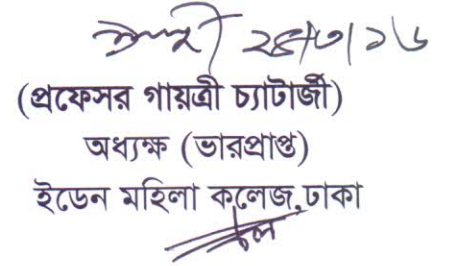 ২৪/৩/১৬
(প্রফেসর গায়ত্রী চ্যাটার্জী)
অধ্যক্ষ (ভারপ্রাপ্ত)
ইডেন মহিলা কলেজ,ঢাকা